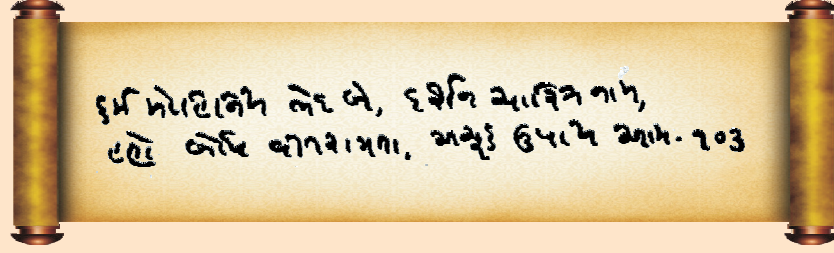 કર્મ મોહનિય ભેદ બે, દર્શન ચારિત્ર નામ,
હણે બોધ વીતરાગતા, અચૂક ઉપાય આમ. ૧૦૩